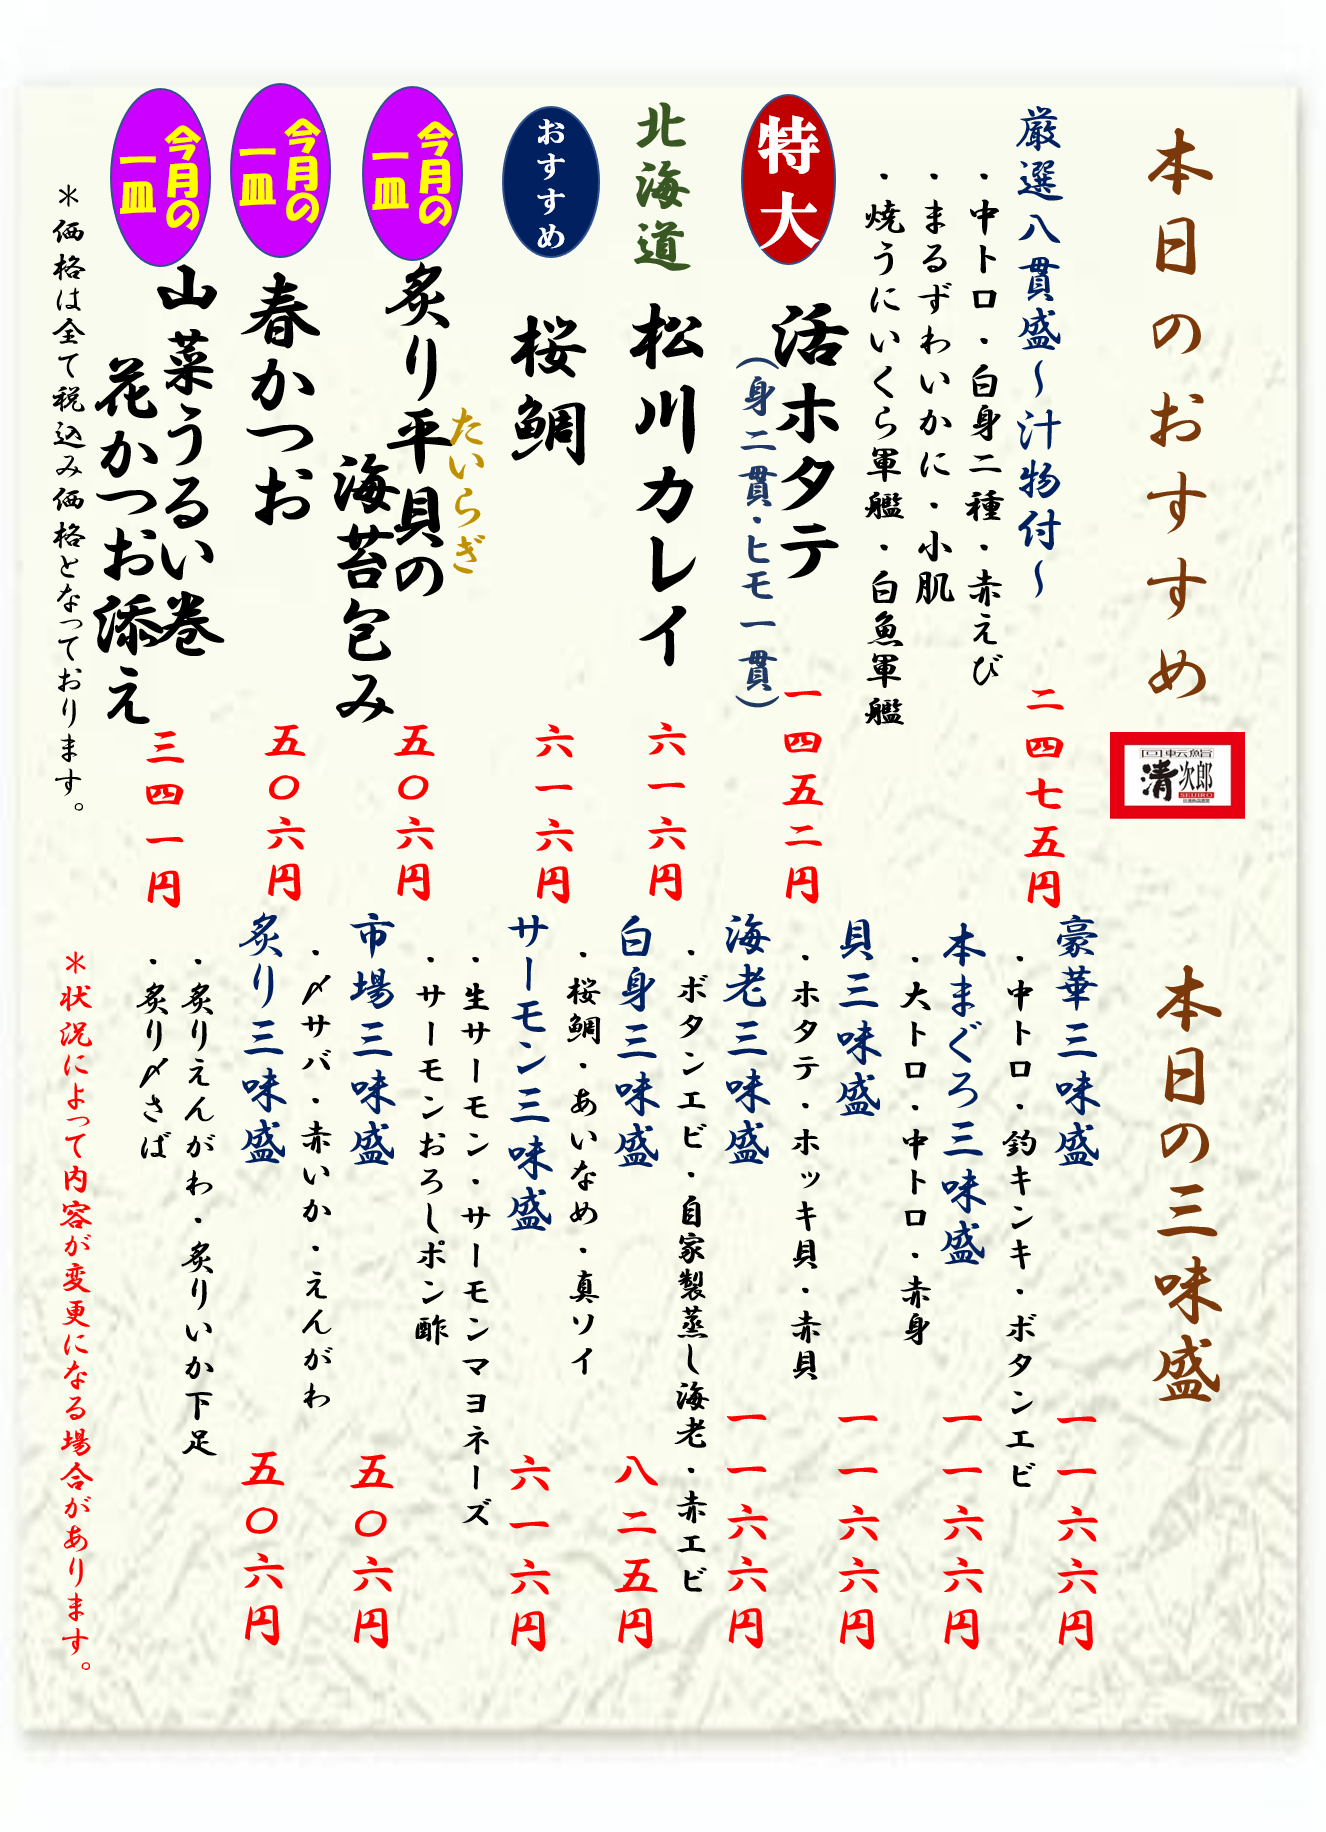 本日のおすすめ
回転鮨
清次郎
SEIJIRO
厳選八貫盛～汁物付～
二四七五円
・中トロ・白身二種・赤えび
・まるずわいかに・小肌
・焼うにいくら軍艦・白魚軍艦
特大
活ホタテ
(身二貫・ヒモ一貫)
一四五二円
北海道
松川カレイ
六一六円
おすすめ
桜鯛
六一六円
今月の
一皿
たいらぎ
炙り平貝の
海苔包み
五〇六円
今月の
一皿
春かつお
五〇六円
今月の
一皿
山菜うるい巻
花かつお添え
三四一円
＊価格は全て税込み価格となっております。
本日の三味盛
豪華三味盛
一一六六円
・中トロ・釣キンキ・ボタンエビ
本まぐろ三味盛
一一六六円
・大トロ・中トロ・赤身
貝三味盛
一一六六円
・ホタテ・ホッキ貝・赤貝
海老三味盛
一一六六円
・ボタンエビ・自家製蒸し海老・赤エビ
白身三味盛
八二五円
・桜鯛・あいなめ・真ソイ
サーモン三味盛
六一六円
・生サーモン・サーモンマヨネーズ
・サーモンおろしポン酢
市場三味盛
五〇六円
・〆サバ・赤いか・えんがわ
炙り三味盛
五〇六円
・炙りえんがわ・炙りいか下足
・炙り〆さば
＊状況によって内容が変更になる場合があります。